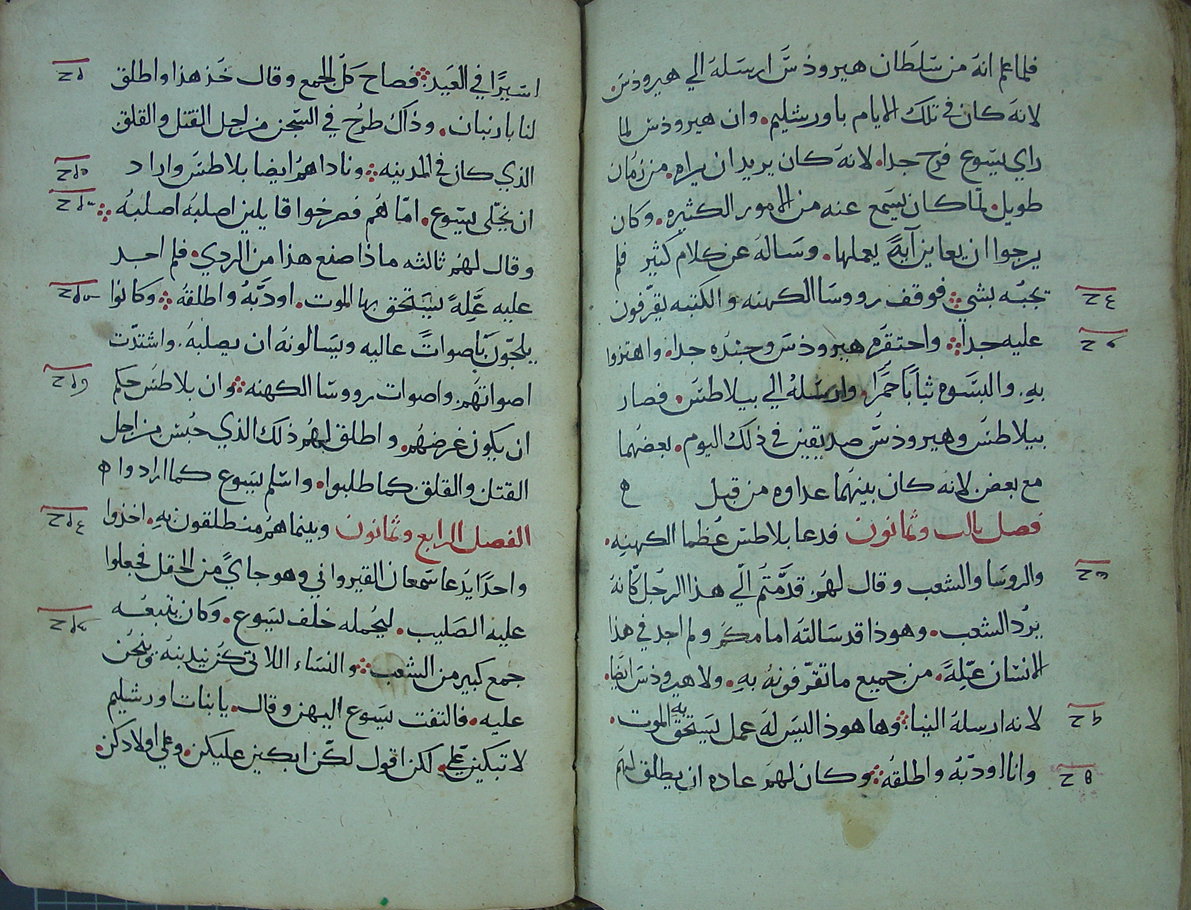 فلما علم انه من سلطان هيروذس ارسله الي هيروذس.
لانه كان في تلك الايام باورشليم. وان هيروذس لما
راي يسوع فرح جدا. لانه كان يريد ان يراه. من زمان
طويل. لما كان يسمع عنه من الامور الكثيره. وكان
يرجوا ان يعاين آيةً يعملها. وساله عن كلام كثير فلم
يجبه بشي. فوقف رووسا الكهنه والكتبه يقرفون
عليه جداً. واحتقره هيروذس وجنده جدا. واهتزوا
به. والبسوه ثياباً حمراً. وارسله الي بيلاطس. فصار
بيلاطس وهيروذس صديقين في ذلك اليوم. بعضهما
مع بعض لانه كان بينهما عداوه من قبل ه
فصل ثالث وثمانون فدعا بلاطس عُظما الكهنه.
والروسا والشعب وقال لهم. قدَّمتُم اليّ هذا الرجل كانه
يردّ الشعب. وهوذا قد سالته امامكم ولم اجد في هذا
الانسان عِلّةً. من جميع ما تقرفونهُ به. ولا هيروذس ايضا.
لانه ارسلهُ الينا. وها هوذا ليس له عمل يستحق به الموت.
وانا اودّبهُ واطلقهُ. وكان لهم عاده ان يطلق لهم
اسيرًا في العيد. فصاح كلّ الجمع وقال خذ هذا واطلق
لنا بارنبان. وذاك طرحُ في السجن من اجل القتل والقلق
الذي كان في المدينه. وناداهم ايضا بلاطس واراد
ان يخلّى يسوع. امّا هُم فصرخوا قايلين اصلبهُ اصلبهُ
وقال لهم ثالثه ماذا صنع هذا من الردي. فلم اجد
عليه عِلّةً يستحق بها الموت. اودّبهُ واطلقهُ. وكانوا
يلجّون باصواتً عاليه ويسالونهُ ان يصلبهُ. واشتدّت
اصواتهُم. واصوات رووسا الكهنه. وان بلاطس حكم
ان يكون غرضهُم. واطلق لهُم ذلك الذي حُبس من اجل
القتل والقلق كما طلبوا. واسلم يسوع كما ارادوا ه
الفصل الرابع وثمانون وبينما هُم منطلقون به. اخذوا
واحدًا يُدعا سمعان القيرواني وهو جايً من الحقل فجعلوا
عليه الصليب. ليحمله خلف يسوع. وكان يتبعُه
جمع كبير من الشعب. والنساء اللاتي كنّ يندبنهُ. وينحُن
عليه. فالتفت يسوع اليهن وقال. يا بنات اورشليم
لا تبكين عليّ. لكن اقول لكن ابكين عليكن. وعلي اولادكن.